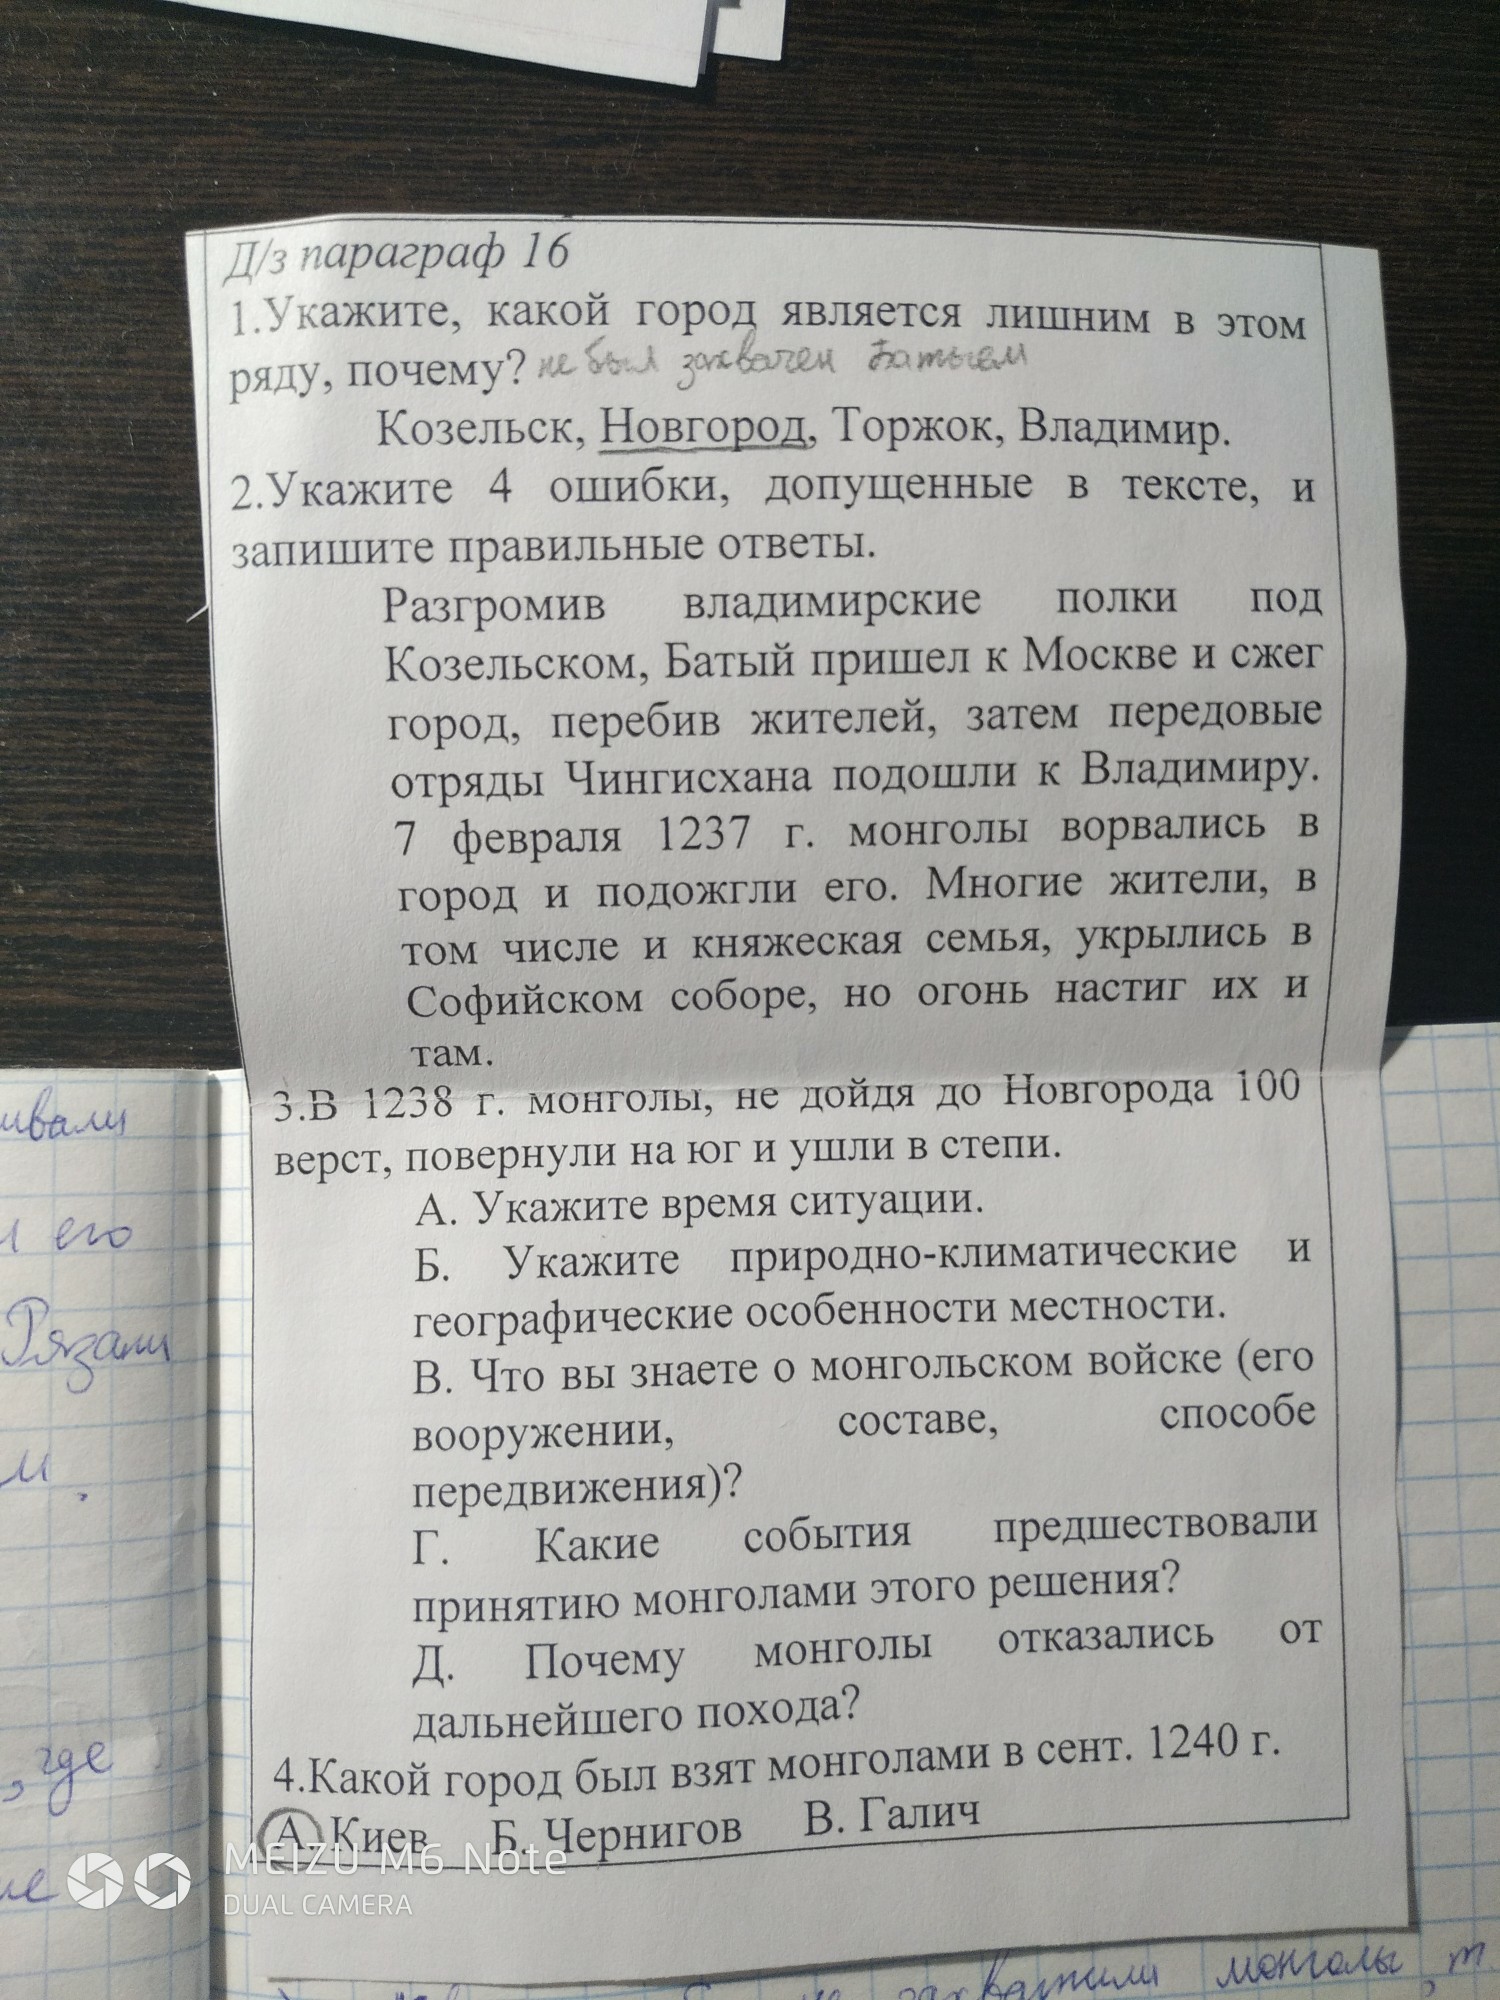 Д/з параграф 16
1.Укажите, какой город является лишним в этом
ряду, почему? не был захвачен Батыем
Козельск, Новгород, Торжок, Владимир.
2.Укажите 4 ошибки, допущенные в тексте, и
запишите правильные ответы.
Разгромив владимирские полки под
Козельском, Батый пришел к Москве и сжег
город, перебив жителей, затем передовые
отряды Чингисхана подошли к Владимиру.
7 февраля 1237 г. монголы ворвались в
город и подожгли его. Многие жители, в
том числе и княжеская семья, укрылись в
Софийском соборе, но огонь настиг их и
там.
3.В 1238 г. монголы, не дойдя до Новгорода 100
верст, повернули на юг и ушли в степи.
А. Укажите время ситуации.
Б. Укажите природно-климатические и
географические особенности местности.
В. Что вы знаете о монгольском войске (его
вооружении, составе, способе
передвижения)?
Г. Какие события предшествовали
принятию монголами этого решения?
Д. Почему монголы отказались от
дальнейшего похода?
4.Какой город был взят монголами в сент. 1240 г.
А. Киев Б. Чернигов В. Галич
его
Рязани
, где
MEIZU M6 Note
DUAL CAMERA
захватили монголы, т